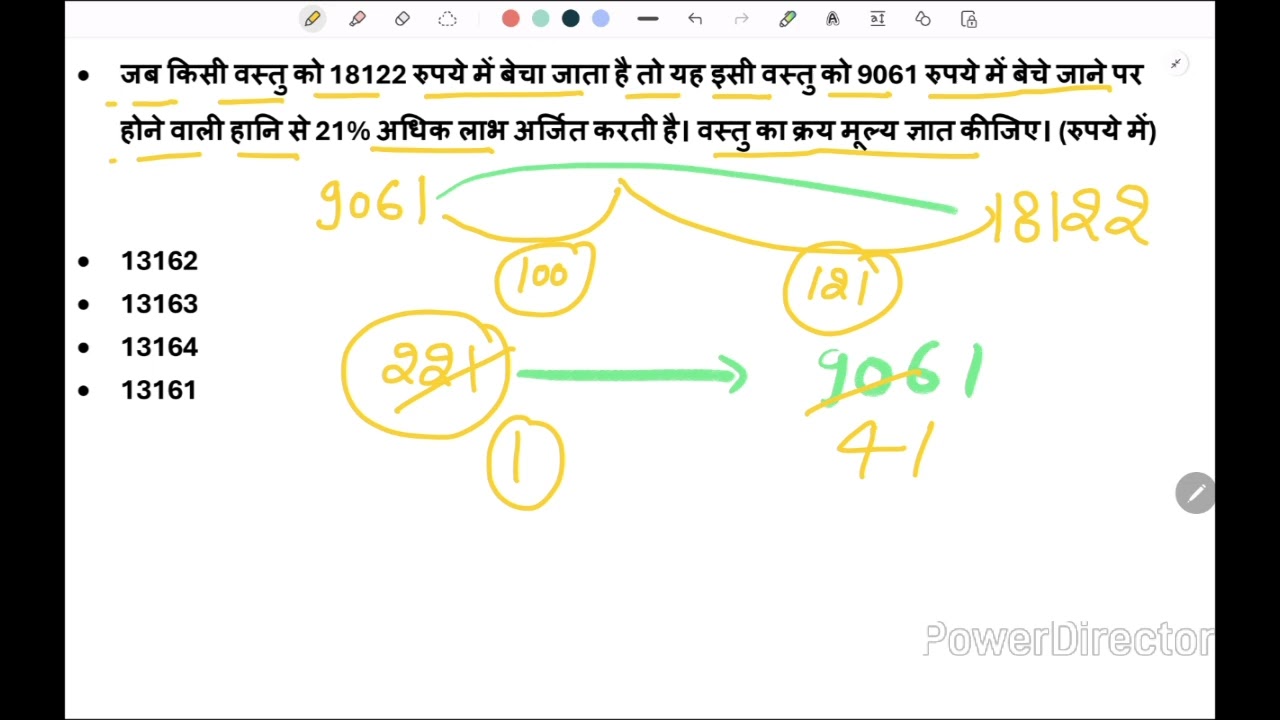 • जब किसी वस्तु को 18122 रुपये में बेचा जाता है तो यह इसी वस्तु को 9061 रुपये में बेचे जाने पर
होने वाली हानि से 21% अधिक लाभ अर्जित करती है। वस्तु का क्रय मूल्य ज्ञात कीजिए। (रुपये में)
9061 18122
100 121
• 13162
• 13163
• 13164
• 13161
221 9061
1 41
PowerDirector